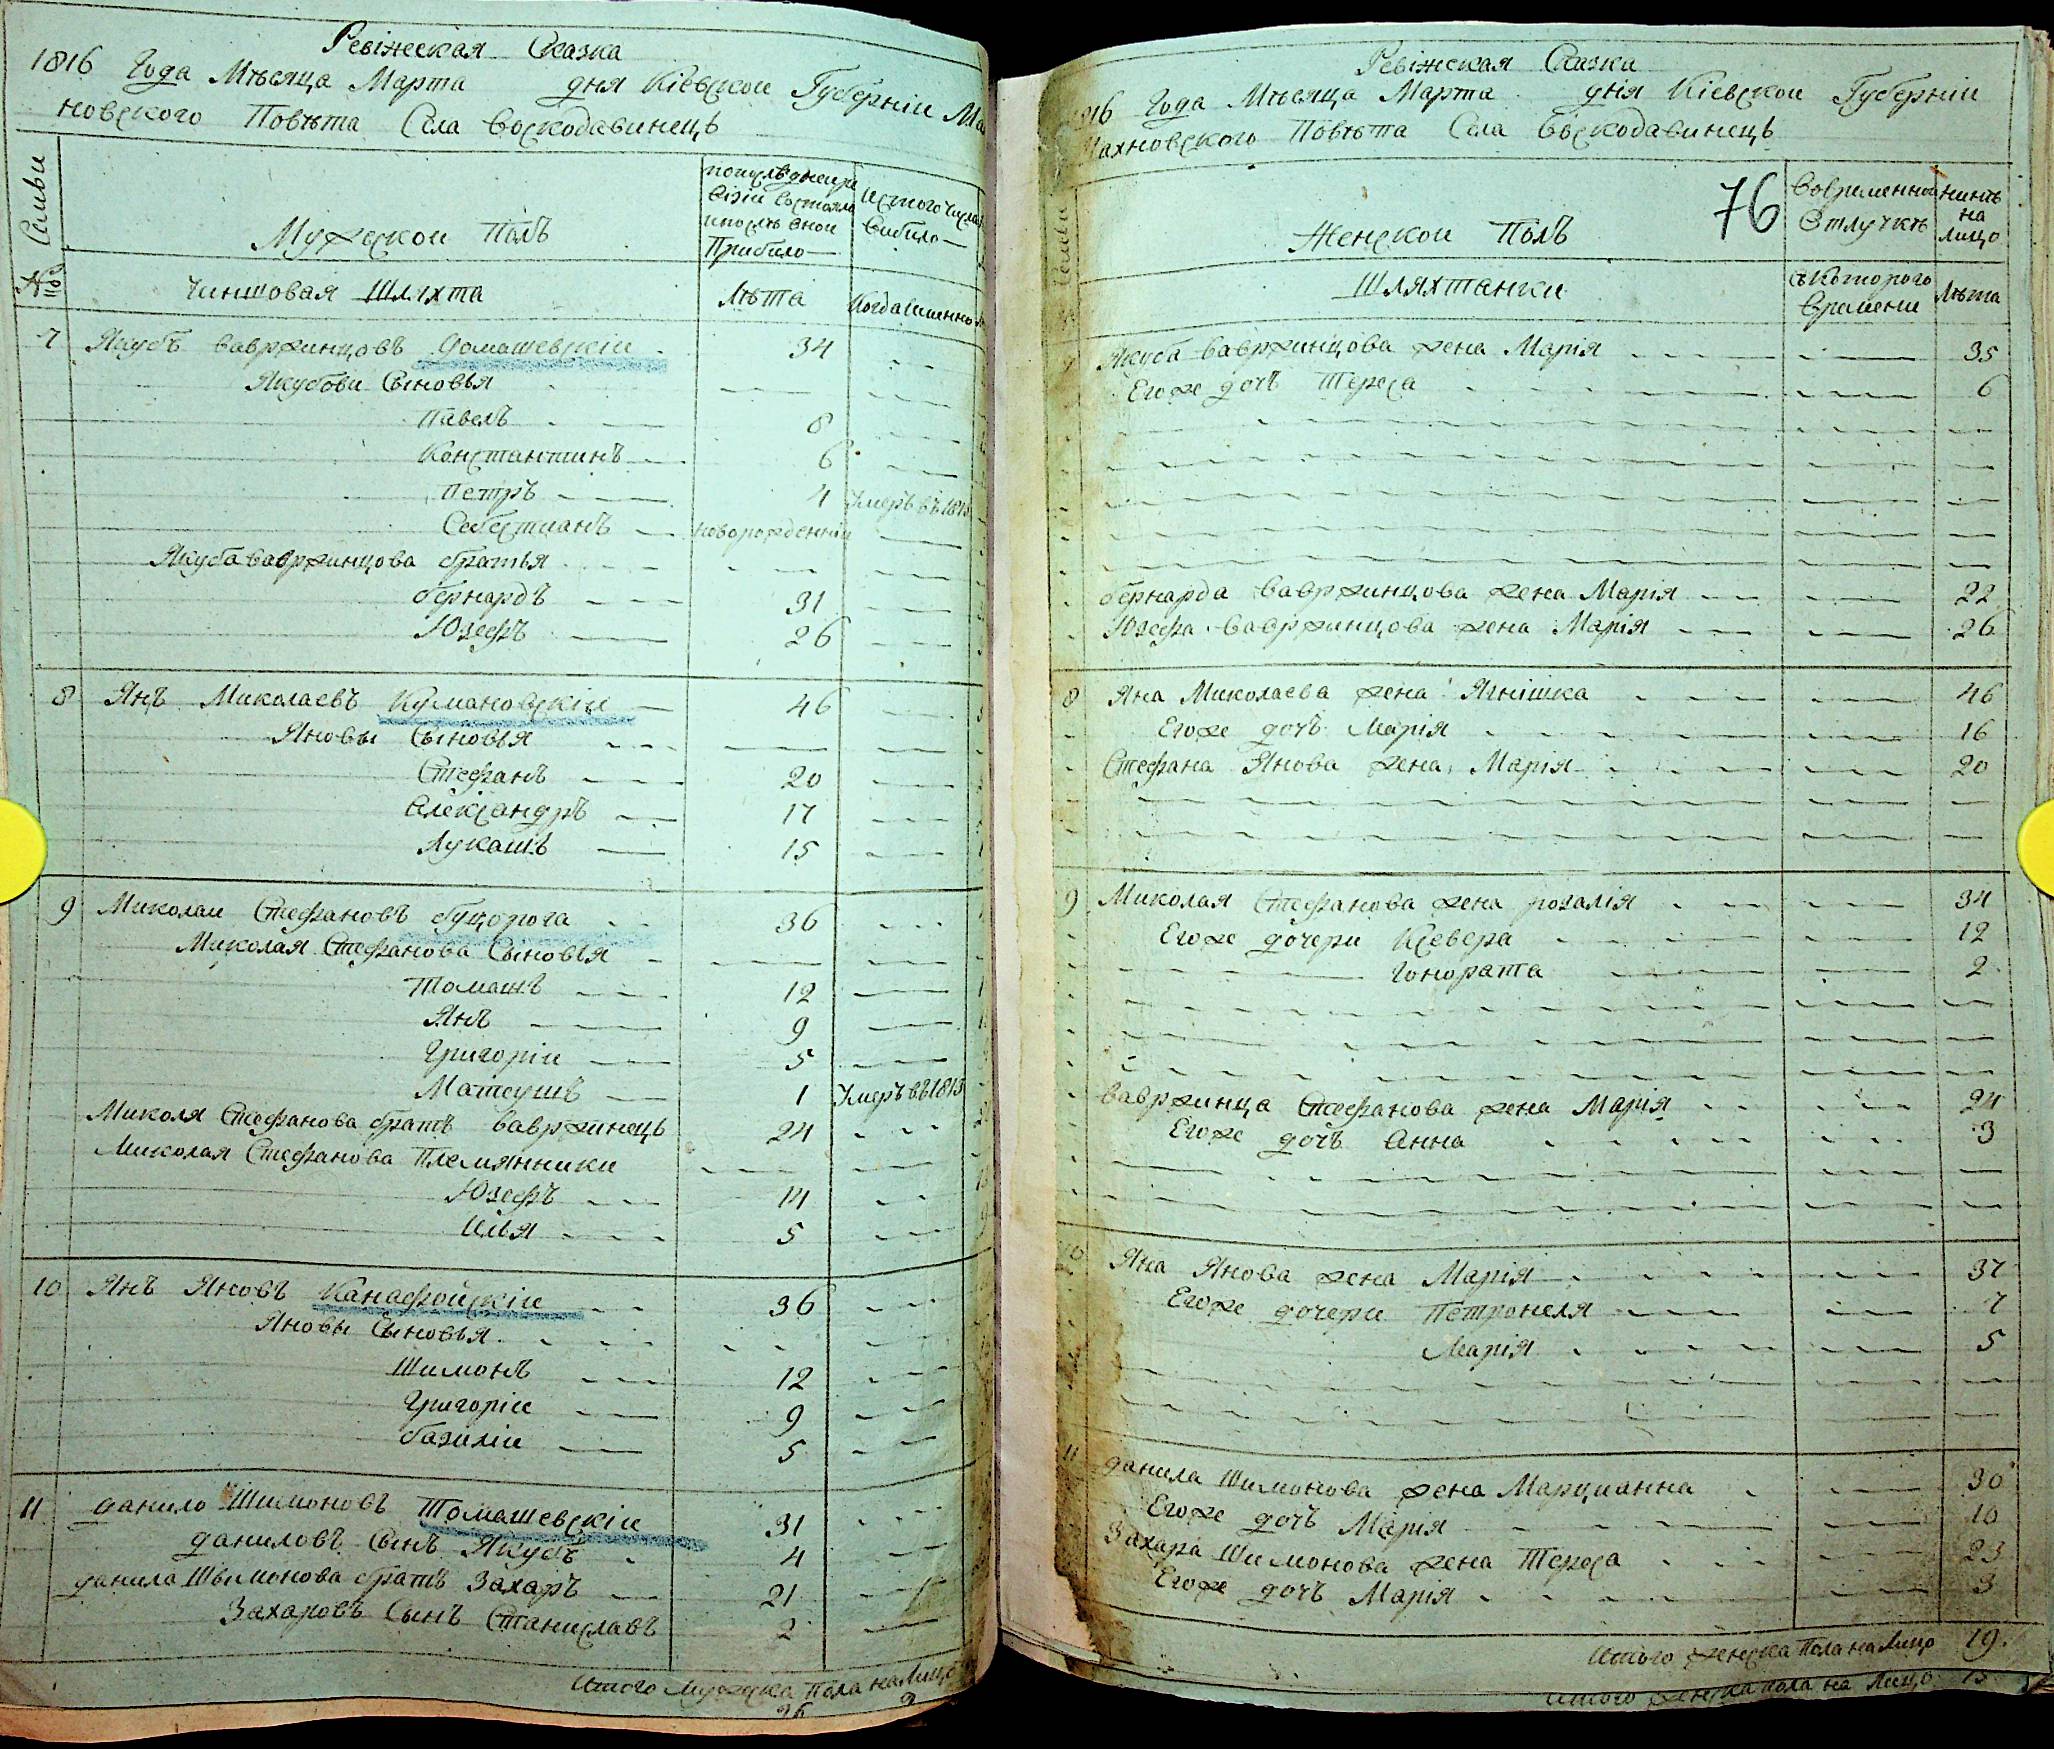 Ревижская Сказка
1816 Года Мѣсяца Марта дня Кіевской Губерніи Ма
новского Повѣта Села Воскодавинецъ
Семьи
№
Мужескои Полъ
Прибило
Изтого числа
Вибило
Чиншовая Шляхта
Лѣта
Когда именно
7 Якубъ Вавржинцовъ Домашевскіи 34
Якубови Сыновья
Павелъ 8
Константинъ 6
Петръ 4 Умеръ въ 1813
Себестианъ новорожденній
Якуба Вавржинцова братья
бернардъ 31
Юзефъ 26
8 Янъ Миколаевъ Кумановскіи 46
Яновы Сыновья
Стефанъ 20
Александръ 17
Лукашъ 15
9 Миколаи Стефановъ буцорога 36
Миколая Стефанова Сыновья
Томашъ 12
Янъ 9
Григоріи 5
Матеушъ 1 Умеръ въ 1813
Миколя Стефанова братъ Вавржинецъ 24
Миколая Стефанова Племянники
Юзефъ 14
Илья 5
10 Янъ Яновъ Канафойскіи 36
Яновы Сыновья
Шимонъ 12
Григоріи 9
базиліи 5
11 данило Шимоновъ Томашевскіи 31
даниловъ Сынъ Якубъ 4
данила Шимонова братъ Захаръ 21
Захаровъ Сынъ Станиславъ 2
Итого Мужеска Пола на Лицо
Ревижская Сказка
1816 Года Мѣсяца Марта дня Кіевской Губерніи
Махновского Повѣта Села Воскодавинецъ
Семьи
76
Женскои Полъ
Вовременной
Отлучкѣ
нинѣ
на
лицо
Шляхтанки
съ Которого
Времени
Лѣта
7 Якуба Вавржинцова жена Марія 35
Егоже дочъ Тереса 6
бернарда Вавржинцова жена Марія 22
Юзефа Вавржинцова жена Марія 26
8 Яна Миколаева жена Ягнішка 46
Егоже дочъ Марія 16
Стефана Янова жена Марія 20
9 Миколая Стефанова жена розалія 34
Егоже дочери Ксевера 12
Гонората 2
Вавржинца Стефанова жена Марія 24
Егоже дочъ Анна 3
10 Яна Янова жена Марія 37
Егоже дочери Петронеля 7
Марія 5
11 данила Шимонова жена Марцианна 30
Егоже дочъ Марія 10
Захара Шимонова жена Тереса 23
Егоже дочъ Марія 3
Итого женска Пола на Лицо 19
Итого женска пола на Лицо